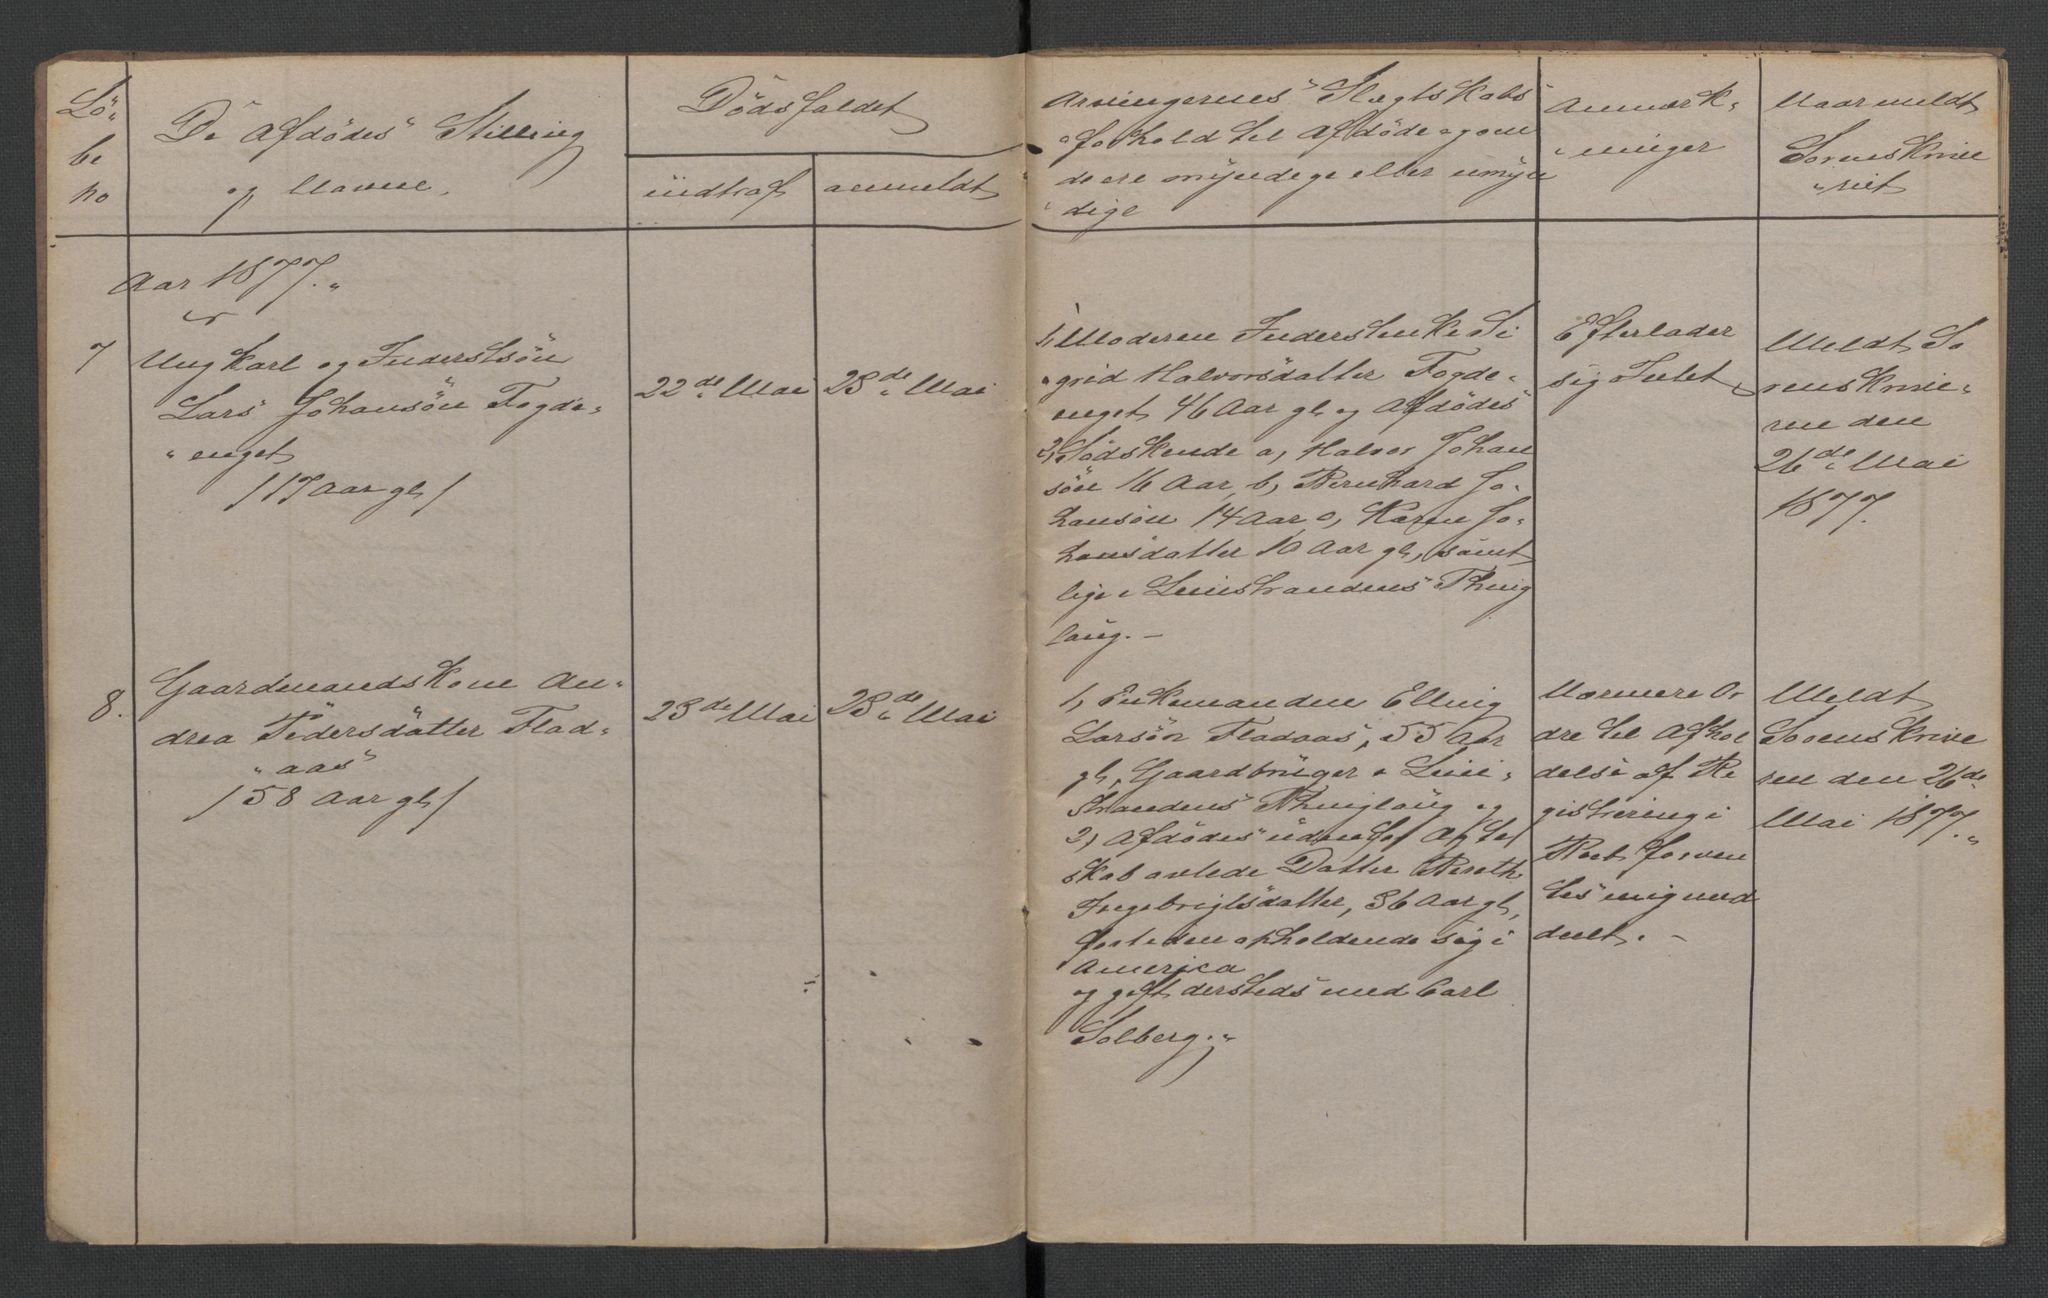 Lö-
be
no
De Afdödes Stilling
og Navne.
Dödsfaldet
indtraf
anmeldt
Arvingernes Slægtskabs
forhold til Afdöde og om
de ere myndige eller umyn
dige
Anmærk-
ninger
Naar meldt
Sorenskrive
ren
Aar 1877.
7
Ungkarl og Inderstsön
Lars Johansön Fogde-
enget
/17 Aar gl/
22de Mai
23de Mai
1, Moderen Inderstenke Si
grid Halvorsdatter Fogde-
enget 46 Aar gl og Afdödes
2, Södskende a, Halvor Johan
sön 16 Aar, b, Bernhard Jo-
hansön 14 Aar c, Karen Jo-
hansdatter 10 Aar gl, samt
lige i Leinstrandens Thing
laug. -
Efterlader
sig Intet
Meldt So
renskrive-
ren den
26de Mai
1877.
8.
Gaardmandskone An-
drea Pedersdatter Flad-
aas
/58 Aar gl/
23de Mai
23de Mai
1, Enkemanden Elling
Larsön Fladaas, 55 Aar
gl, Gaardbruger i Lein-
strandens Thinglaug og
2, Afdödes udenfor Ægte
skab avlede Datter Bereth
Ingebrigtsdatter, 36 Aar gl,
for tiden opholdende sig i
America
og gift dersteds med Carl
Solberg.
Nærmere Or
dre til Afhol
delse af Re
gistrering i
Boet forven
tes mig med
deelt. -
Meldt
Sorenskrive
ren den 26de
Mai 1877.